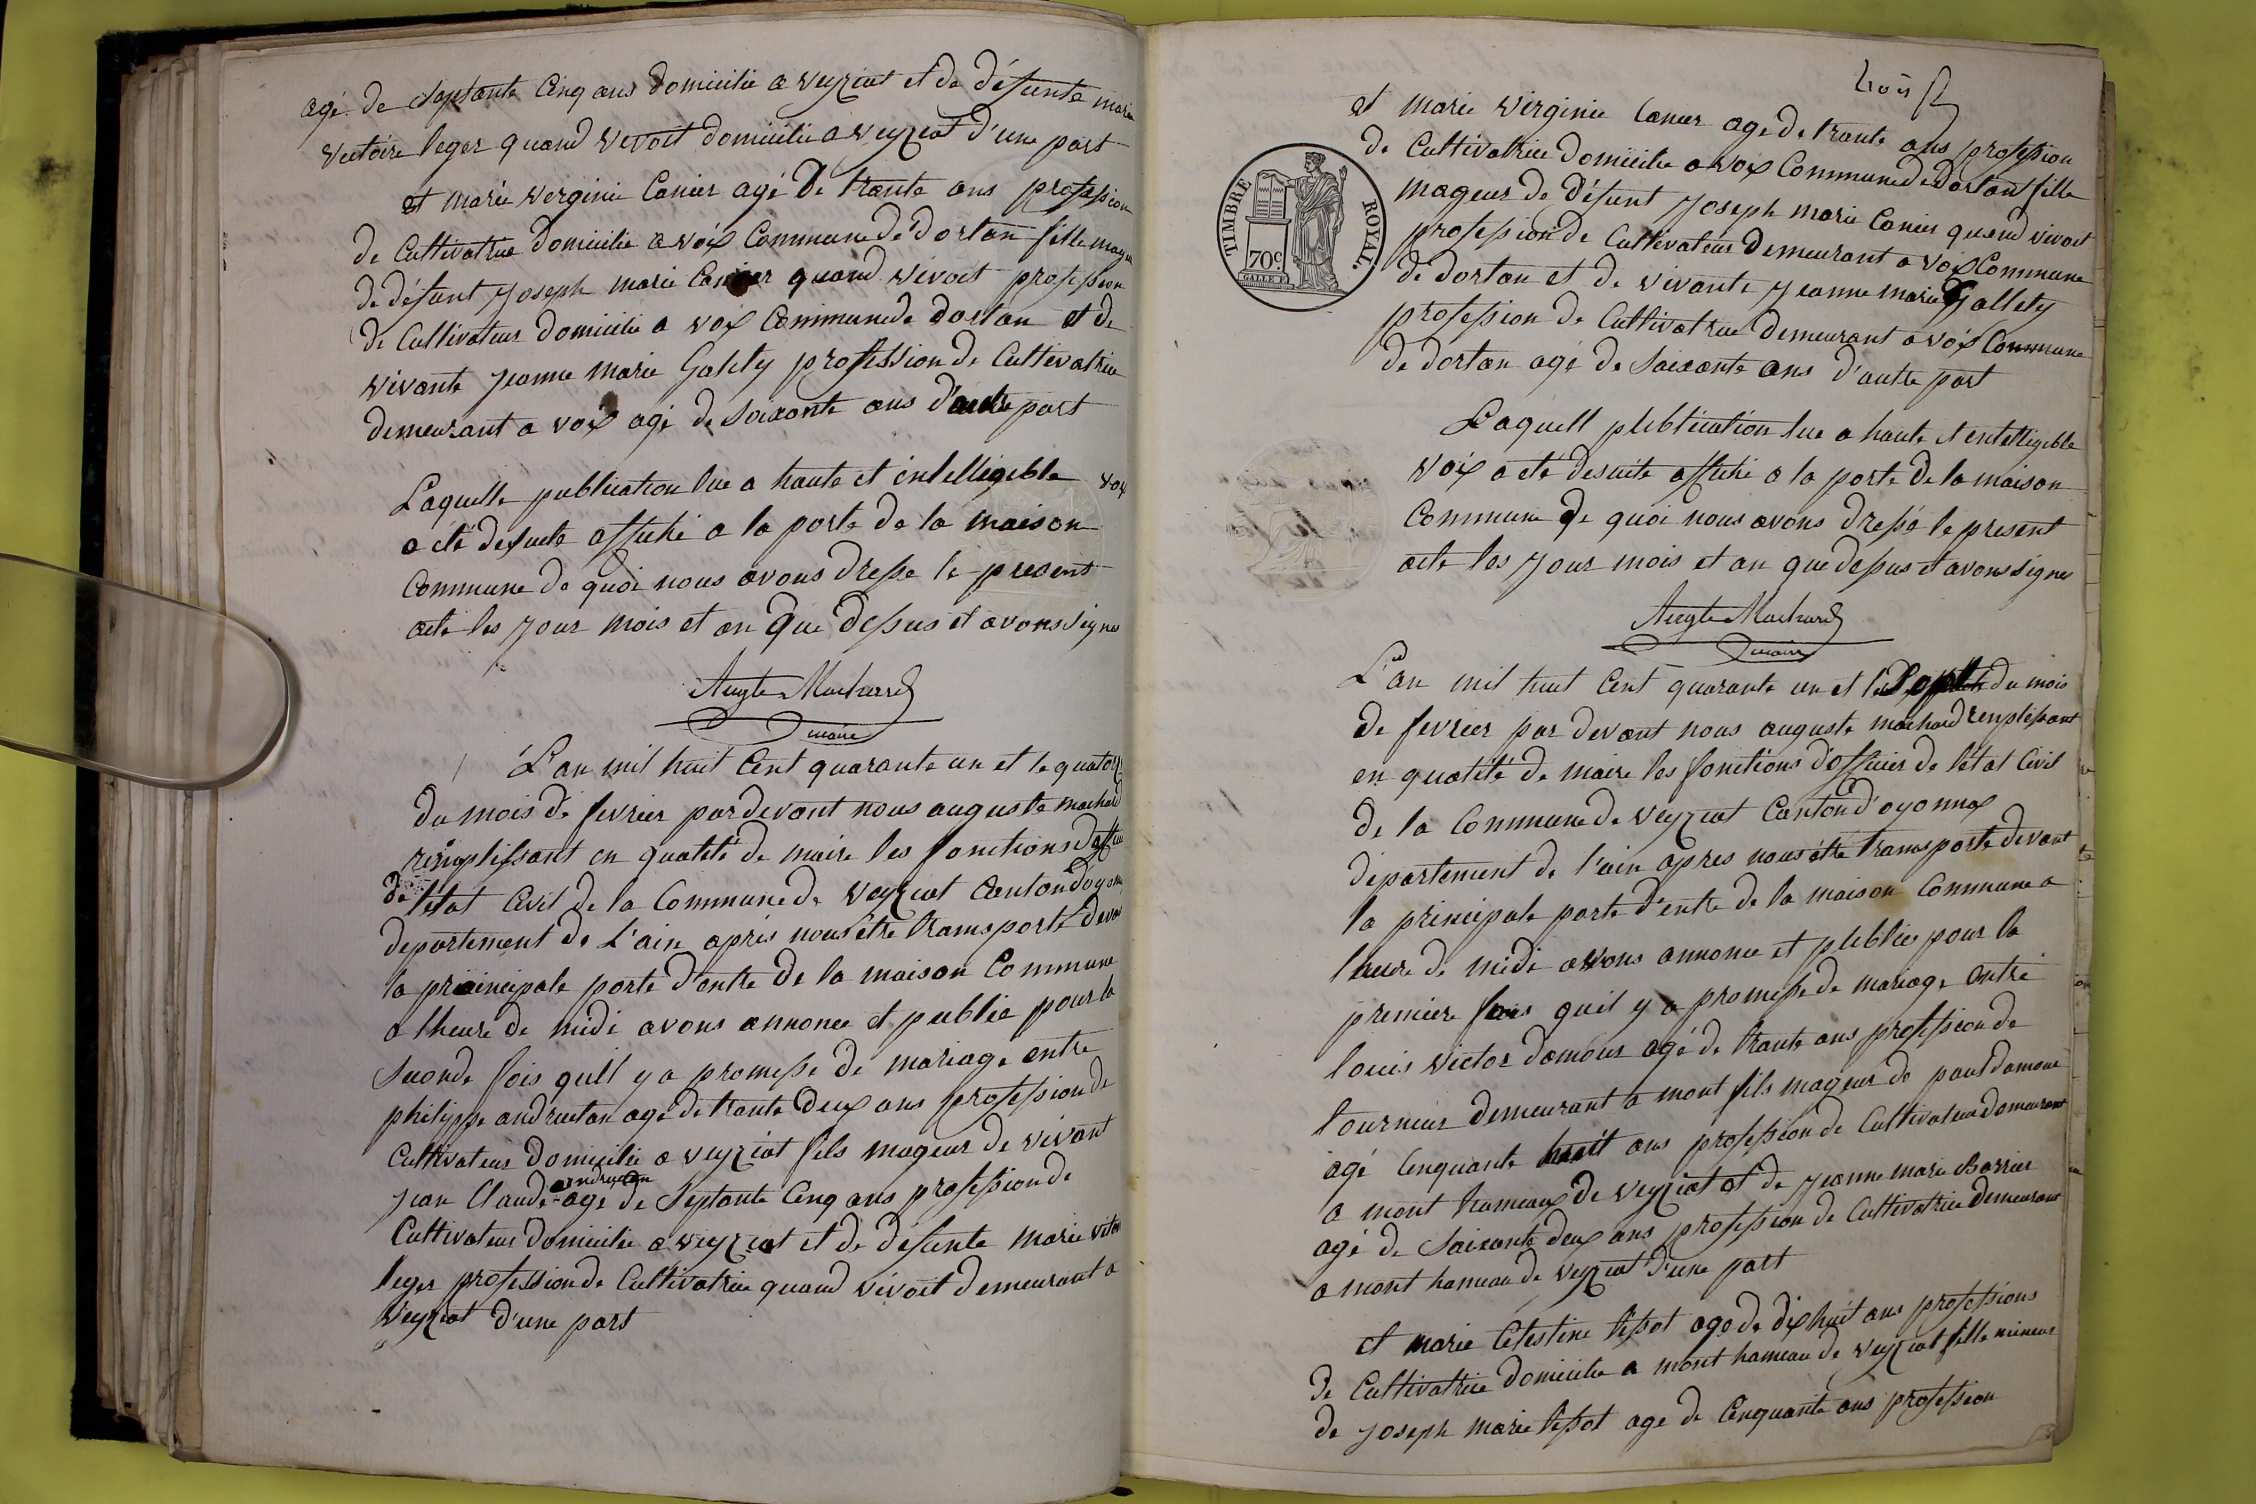 agé de Septante Cinq ans domicilié a veyziat et de défunte marie
victoire leger quand vivoit domicilié a veyziat d'une part
et marie verginie Canier agé De trante ans profession
de Cultivatrice domicilié a voix Commune de dortan fille mageur
de défunt joseph marie Canier quand vivoit profession
de Cultivateur domicilié a voix Commune de dortan et de
vivante jeanne marie Galety profession de Cultivatrice
demeurant a voix agé de soixante ans d'autre part
Laquelle publication lue a haute et intelligible voix
a été desuite affiché a la porte de la maison
Commune de quoi nous avons dressé le présent
acte les jour mois et an que dessus et avons signer
Augte Machard
maire
L'an mil huit Cent quarante un et le quatorze
du mois de fevrier pardevant nous auguste machard
remplissant en qualité de maire les fonctions d'officier
de létat Civil de la Commune de veyziat Canton doyonnax
departement de L'ain après nous être transporté devant
la principale porte d'entre de la maison Commune
a lheure de midi avons annoncé et publié pour la
seconde fois quil y a promesse de mariage entre
philippe andruetan agé de trante Deux ans profession de
Cultivateur domicilié a veyziat fils mageur de vivant
andruetan
jean Claude agé de Septante Cinq ans profession de
Cultivateur domicilié a veyziat et de défunte marie victoire
leger profession de Cultivatrice quand vivoit demeurant a
Veyziat d'une part
trois
et marie virginie Canier agé de trante ans profession
de Cultivatrice domicilié a voix Commune de dortan fille
mageur de défunt joseph marie Canier quand vivoit
profession de Cultivateur demeurant a voix Commune
de dortan et de vivante jeanne marie Gallety
profession de Cultivatrice demeurant a voix Commune
de dortan agé de Soixante ans d'autre part
TIMBRE ROYAL.
70c
Laquell pleblication lue a haute et entelligible
voix a été desuite affiché a la porte de la maison
Commune de quoi nous avons dressé le present
acte les jour mois et an que dessus et avons signer
Augte Machard
maire
L'an mil huit Cent quarante un et le Sept du mois
de fevrier par devant nous auguste machard remplissant
en qualité de maire les fonctions d'officier de létat Civil
de la Commune de veyziat Canton d'oyonnax
departement de l'ain apres nous être transporté devant
la principale porte d'entre de la maison Commune a
lheure de midi avons annoncé et pleblié pour la
premiere fois quil y a promesse de mariage entre
louis victor damour agé de trante ans profession de
tourneur demeurant a mont fils mageur de paul damour
agé Cinquante huit ans profession de Cultivateur demeurant
a mont hameau de veyziat et de jeanne marie Barrier
agé de Soixante deux ans profession de Cultivatrice demeurant
a mont hameau de veyziat d'une part
et marie Celestine tissot agé de dix huit ans profession
de Cultivatrice domicilié a mont hameau de veyziat fille mineur
de joseph marie tissot agé de Cinquante ans profession